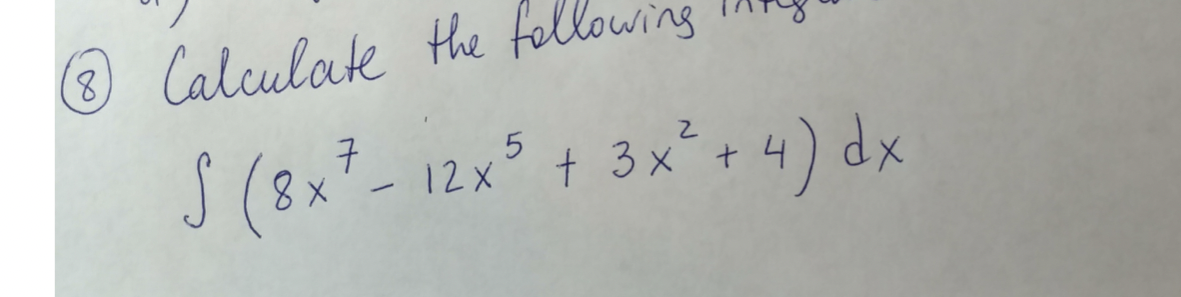 ⑧ Calculate the following
∫ (8x⁷ - 12x⁵ + 3x² + 4) dx